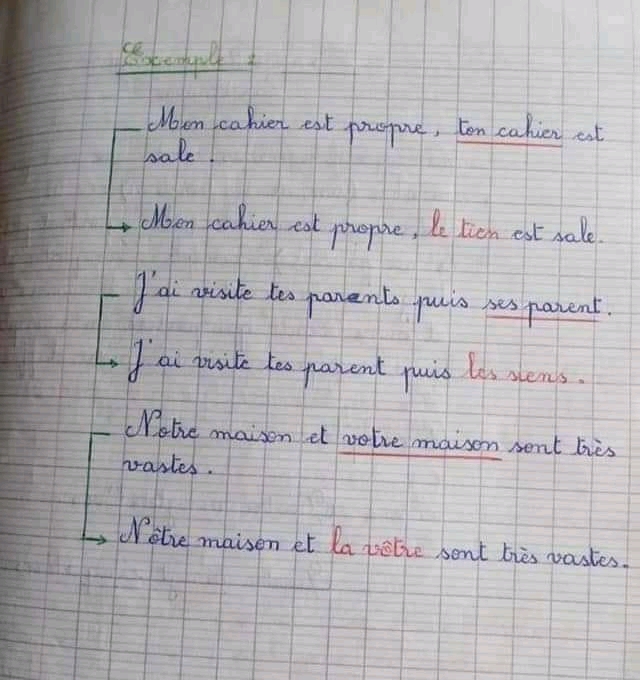 Exemple :
Mon cahier est propre, ton cahier est
sale.
Mon cahier est propre, le tien est sale.
J'ai visite tes parents puis ses parent.
J'ai visite tes parent puis les siens.
Notre maison et votre maison sont très
vastes.
Nôtre maison et la vôtre sont très vastes.